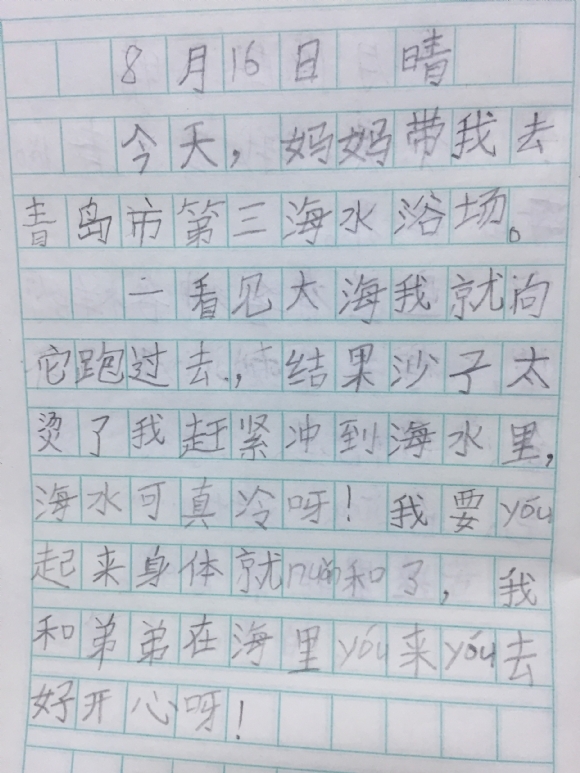 8月16日 晴
今天，妈妈带我去
青岛市第三海水浴场。
一看见大海我就向
它跑过去，结果沙子太
烫了我赶紧冲到海水里，
海水可真冷呀！我要yóu
起来身体就nuǎn和了，我
和弟弟在海里yóu来yóu去
好开心呀！